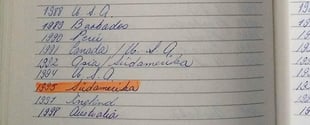 1988 U.S.A.
1989 Barbados
1990 Peru
1991 Canada / U.S.A.
1992 Asia / Südamerika
1994 U.S.A.
1995 Südamerika
1997 England
1998 Australia